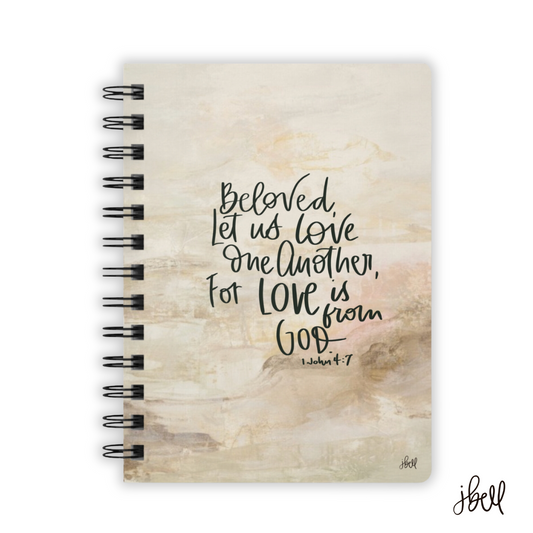 Beloved,
Let us Love
One Another,
For LOVE is
from
GOD.
1 John 4:7
jbell
jbell